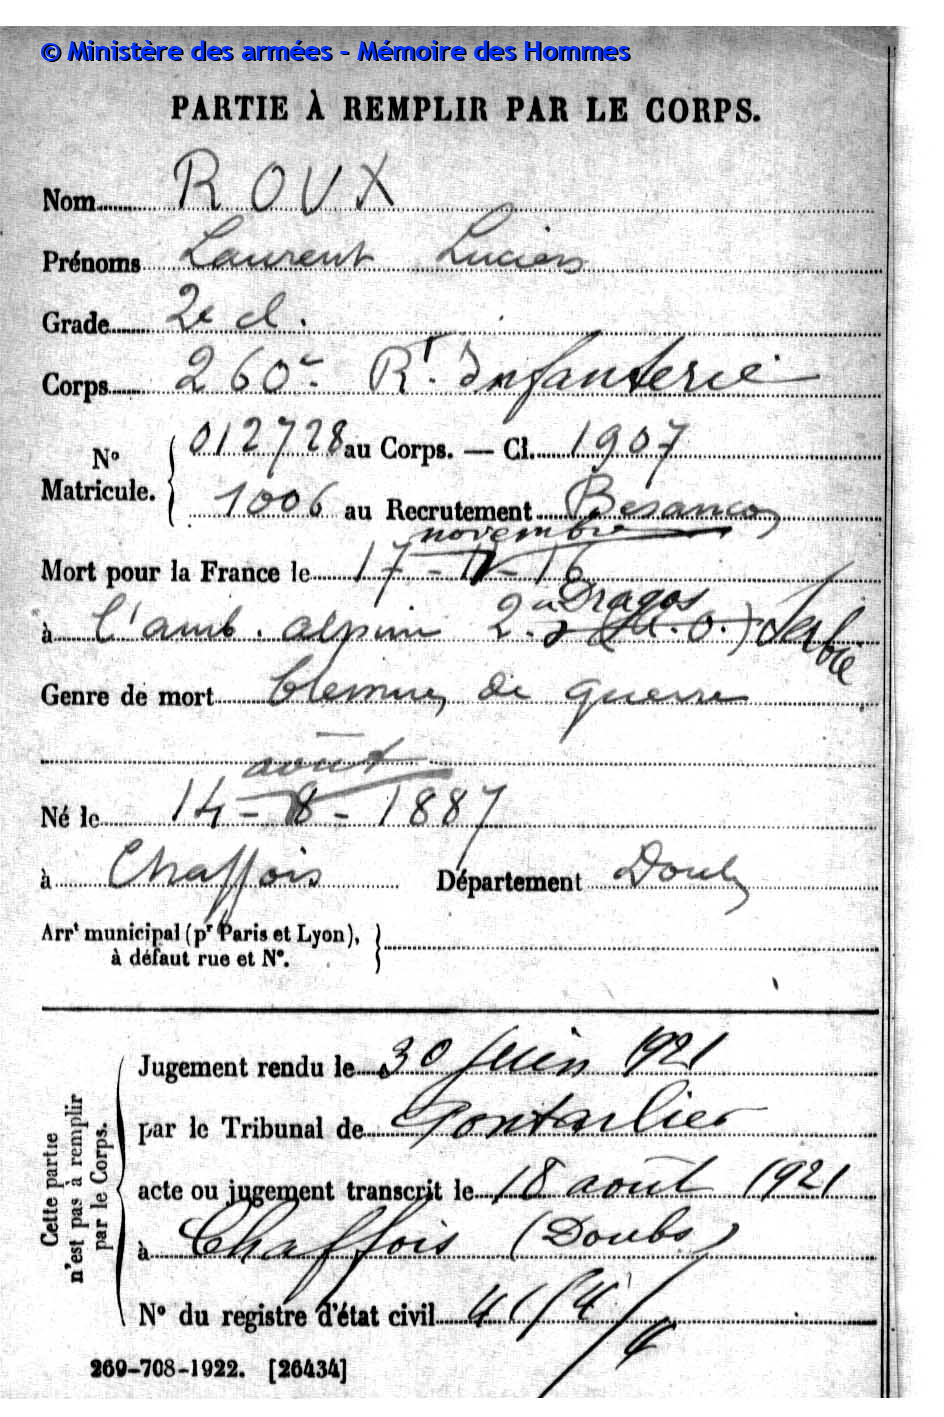 © Ministère des armées - Mémoire des Hommes
PARTIE À REMPLIR PAR LE CORPS.
Nom ROUX
Prénoms Laurent Lucien
Grade 2e cl.
Corps 260e Rt. Infanterie
No Matricule. 012728 au Corps. — Cl. 1907
1006 au Recrutement Besançon
novembre
Mort pour la France le 17-11-16
à Dragos
à l'amb. alpine 2. (M.O.) Serbie
Genre de mort blessures de guerre
août
Né le 14-8-1887
à Chaffois Département Doubs
Arrt municipal (pr Paris et Lyon),
à défaut rue et No.
Cette partie
n'est pas à remplir
par le Corps.
Jugement rendu le 30 Juin 1921
par le Tribunal de Pontarlier
acte ou jugement transcrit le 18 août 1921
à Chaffois (Doubs)
No du registre d'état civil
269-708-1922. [26434]